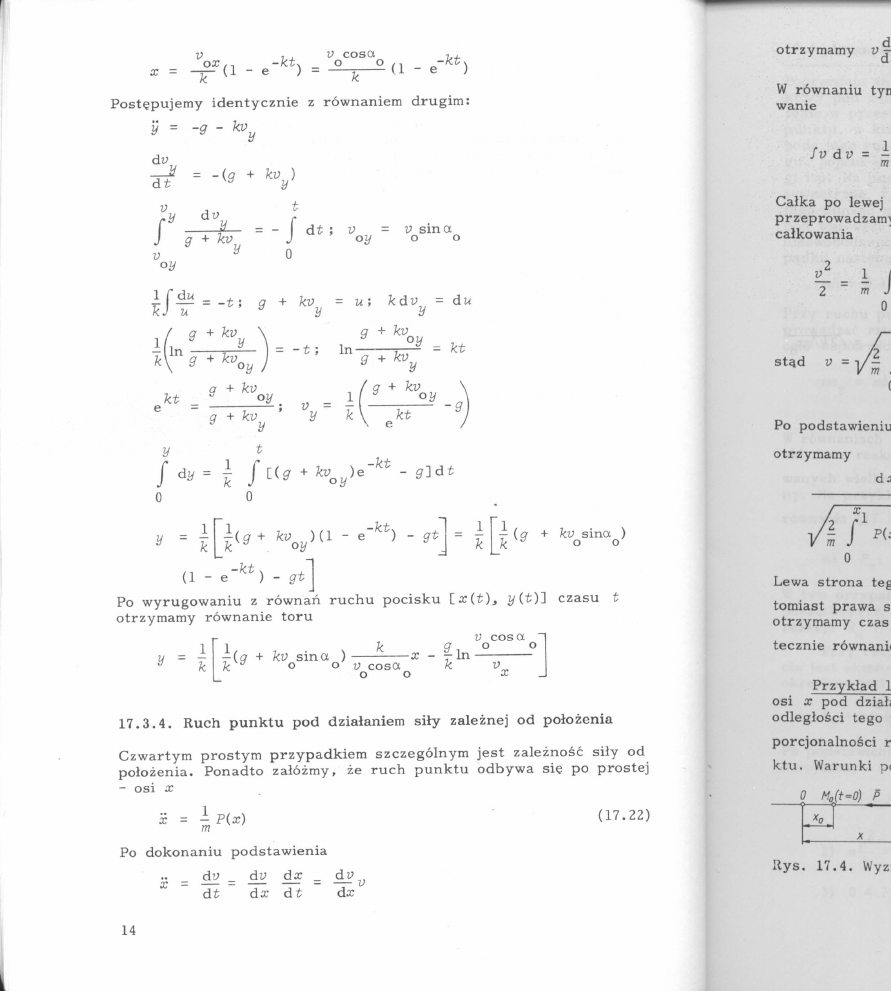 x = v_ox/k (1 - e^-kt) = v_o cosα_o/k (1 - e^-kt)
Postępujemy identycznie z równaniem drugim:
ÿ = -g - kv_y
dv_y/dt = -(g + kv_y)
∫_{v_oy}^{v_y} dv_y/(g + kv_y) = - ∫_0^t dt ; v_oy = v_o sinα_o
1/k ∫ du/u = -t ; g + kv_y = u ; k dv_y = du
1/k (ln (g + kv_y)/(g + kv_oy)) = -t ; ln (g + kv_oy)/(g + kv_y) = kt
e^kt = (g + kv_oy)/(g + kv_y) ; v_y = 1/k ((g + kv_oy)/e^kt - g)
∫_0^y dy = 1/k ∫_0^t [(g + kv_oy)e^-kt - g]dt
y = 1/k [1/k (g + kv_oy)(1 - e^-kt) - gt] = 1/k [1/k (g + kv_o sinα_o)
(1 - e^-kt) - gt]
Po wyrugowaniu z równań ruchu pocisku [x(t), y(t)] czasu t
otrzymamy równanie toru
y = 1/k [1/k (g + kv_o sinα_o) k/(v_o cosα_o) x - g/k ln (v_o cosα_o)/v_x]
17.3.4. Ruch punktu pod działaniem siły zależnej od położenia
Czwartym prostym przypadkiem szczególnym jest zależność siły od
położenia. Ponadto załóżmy, że ruch punktu odbywa się po prostej
- osi x
ẍ = 1/m P(x) (17.22)
Po dokonaniu podstawienia
ẍ = dv/dt = dv/dx dx/dt = dv/dx v
14
otrzymamy v d/d
W równaniu tym
wanie
∫v dv = 1/m
Całka po lewej
przeprowadzamy
całkowania
v²/2 = 1/m ∫_0
stąd v = √(2/m
Po podstawieniu
otrzymamy
√(2/m ∫_0^x1 P(
Lewa strona teg
tomiast prawa s
otrzymamy czas
tecznie równani
Przykład 1
osi x pod dział
odległości tego
porcjonalności r
ktu. Warunki p
0 M₀(t=0) P̄
x₀
x
Rys. 17.4. Wyz